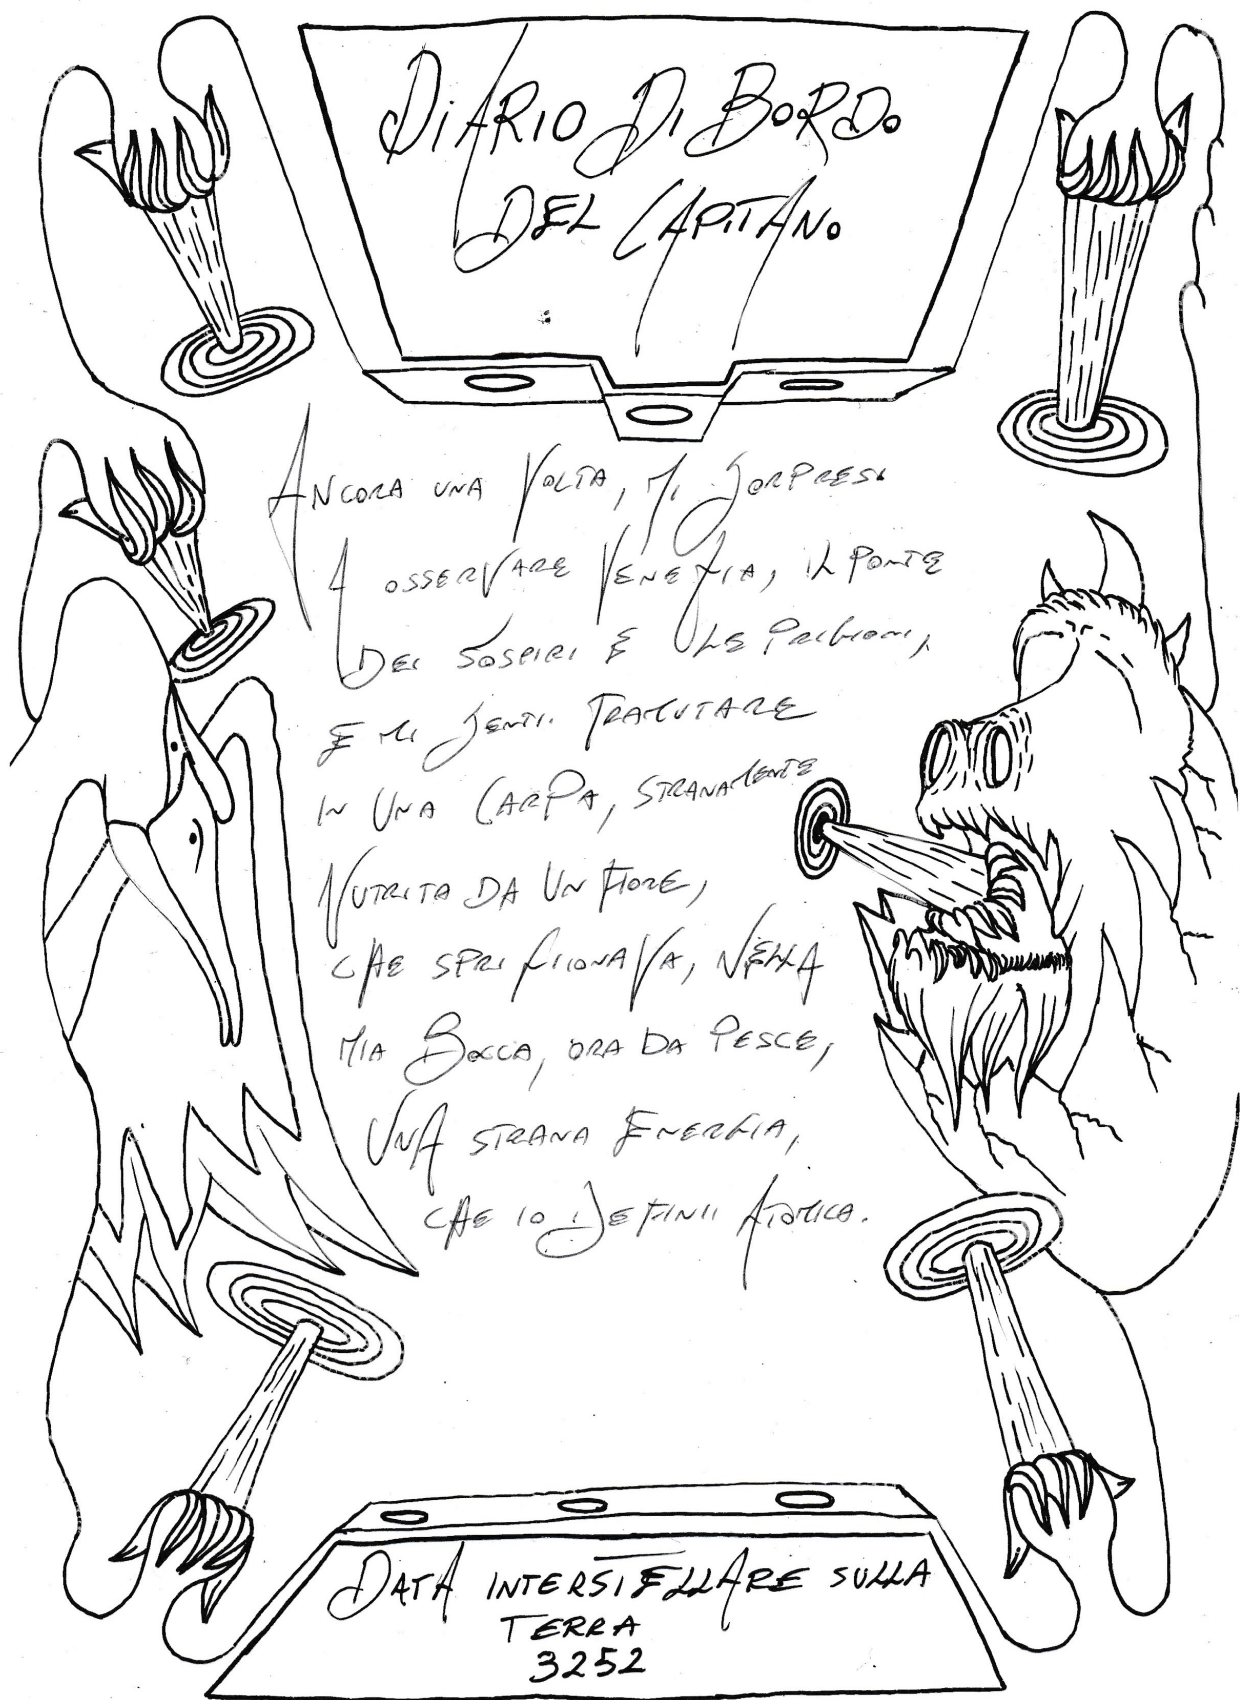 DiARIO Di BORDO
DEL CAPITANO
ANCORA UNA VOLTA, Mi SORPRESi
A OSSERVARE VENEZIA, IL PONTE
DEI SOSPIRI E LE PRIGIONI,
E Mi SENTII TRAMUTARE
IN UNA CARPA, STRANAMENTE
NUTRITA DA UN FIORE,
CHE SPRIGIONAVA, NELLA
MIA BOCCA, ORA DA PESCE,
UNA STRANA ENERGIA,
CHE IO DEFINII ATOMICA.
DATA INTERSTELLARE SULLA
TERRA
3252